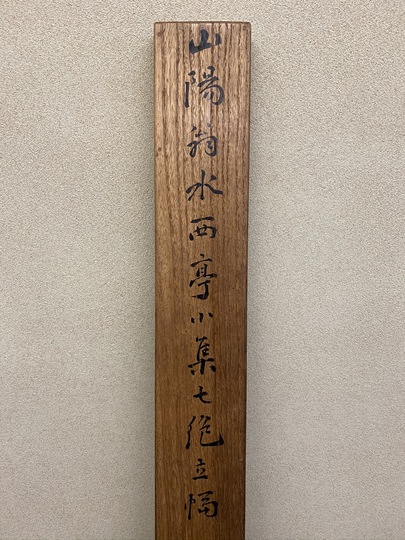 山陽翁水西亭小集七絶立幅